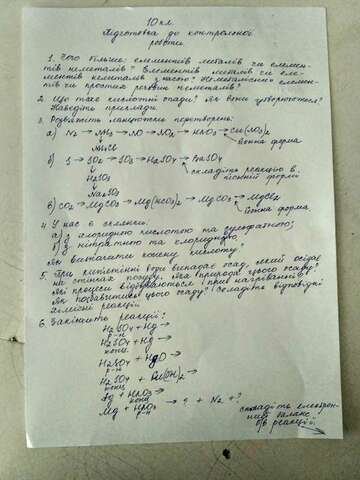 10 кл
Підготовка до контрольної
роботи
1. Чого більше: елементів металів чи елемен-
тів неметалів? Елементів металів чи еле-
ментів неметалів з назвою? Неметалічних елемен-
тів чи простих речовин неметалів?
2. Що таке кислотні опади? Як вони утворюються?
Наведіть приклади.
3. Розв'яжіть ланцюжки перетворень:
а) N2 → NH3 → NO → NO2 → HNO3 → Cu(NO3)2
йонна форма
NH4Cl
б) S → SO2 → SO3 → H2SO4 → BaSO4
складіть реакцію в
йонній формі
H2SO3
Na2SO3
в) CO2 → MgCO3 → Mg(HCO3)2 → MgCO3 → MgCl2
йонна форма
4. У нас є склянки:
а) з хлоридною кислотою та сульфатною;
б) з нітратною та хлоридною.
Як визначити кожну кислоту?
5. При кипятінні води випадає осад, який осідає
на стінках посуду. Яка природа цього осаду?
Які процеси відбуваються при нагріванні?
Як позбавитись цього осаду? Складіть відповідні
хімічні реакції
6. Закінчить реакції:
H2SO4 + Hg →
р-н
H2SO4 + Hg →
конц
H2SO4 + HgO →
р-н
H2SO4 + (OH)2 →
конц
Ag + HNO3 →
конц
Mg + HNO3 → ? + N2 + ?
р-н
складіть електрон-
ний баланс
реакцій.